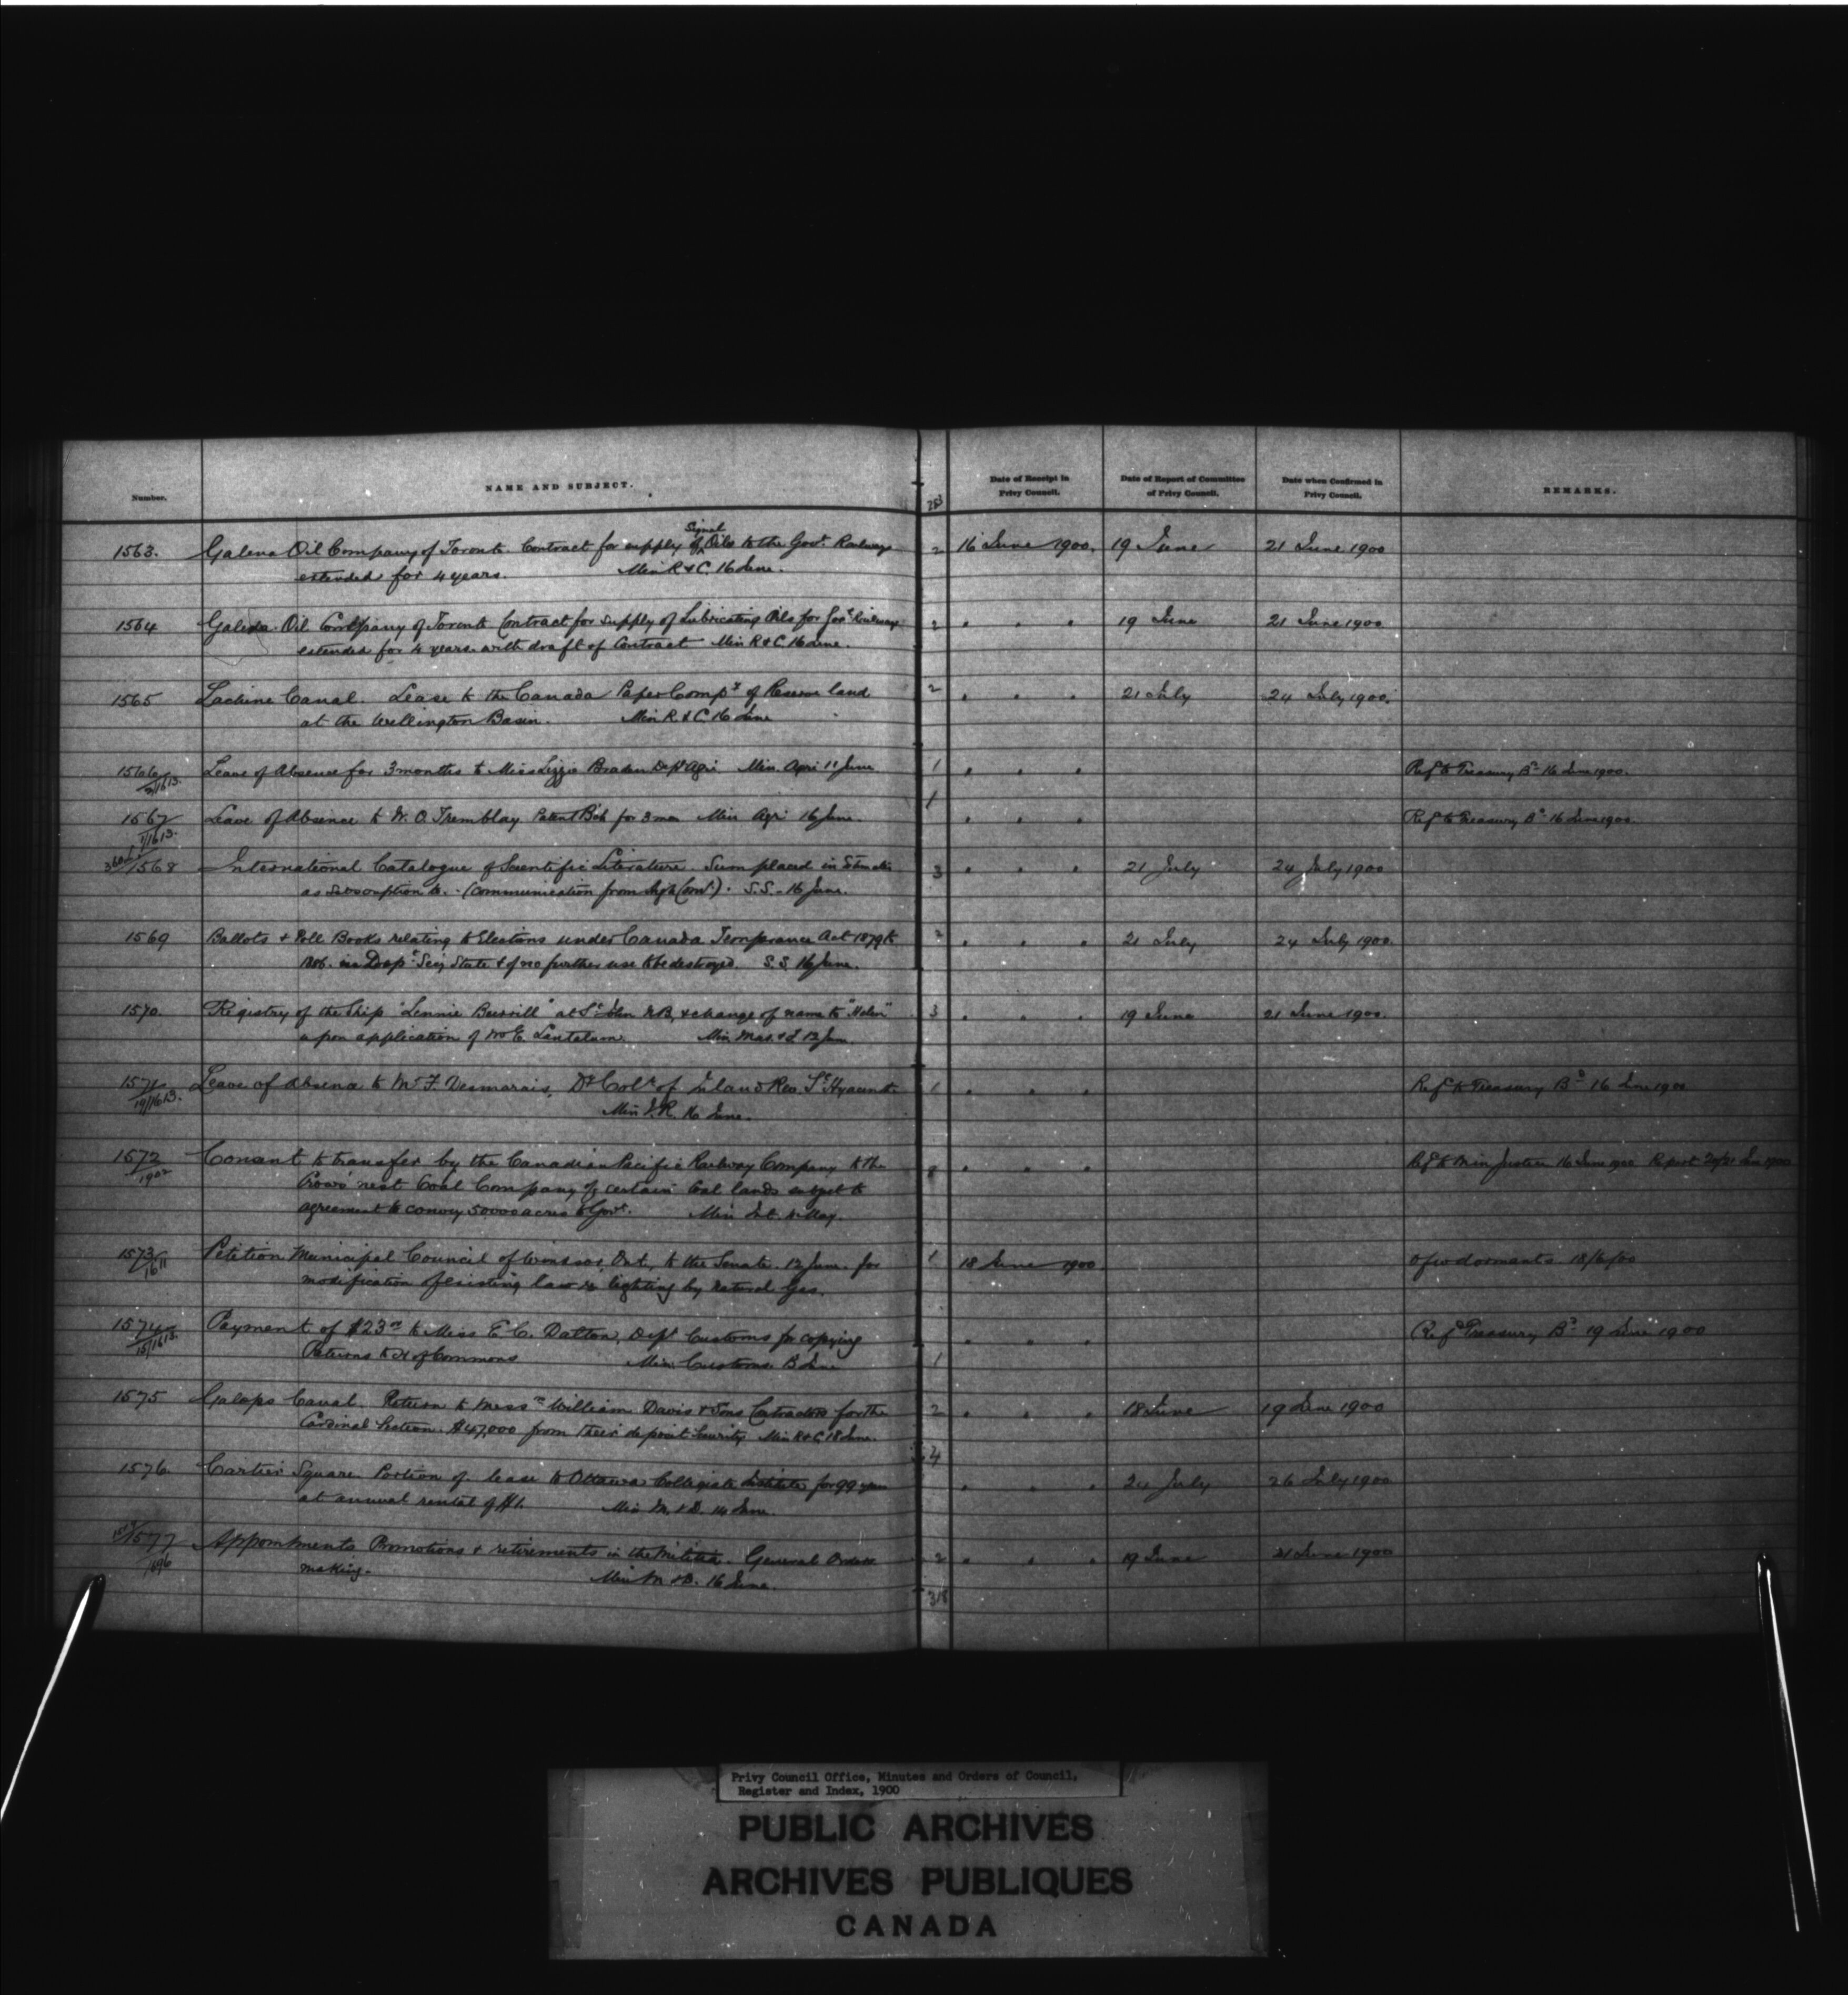 Number.
NAME AND SUBJECT.
Date of Receipt in
Privy Council.
Date of Report of Committee
of Privy Council.
Date when Confirmed in
Privy Council.
REMARKS.
1563. Galena Oil Company of Toronto. Contract for supply of Signal Oils to the Govt. Railways 2 16 June 1900. 19 June 21 June 1900
extended for 4 years. Min R & C. 16 June.
1564 Galena Oil Company of Toronto Contract for supply of Lubricating Oils for Govt Railways 2 " " " 19 June 21 June 1900
extended for 4 years with draft of Contract Min R & C 16 June.
1565 Lachine Canal. Lease to the Canada Paper Compy of Reserve land 2 " " " 21 July 24 July 1900.
at the Wellington Basin. Min R & C. 16 June
1566 Leave of Absence for 3 months to Miss Lizzie Braden Dept Agri Min. Agri 11 June 1 " " " Ref to Treasury Bd 16 June 1900.
2/1613.
1567 Leave of Absence to W. O. Tremblay Patent Bch for 3 mos Min Agri 16 June. 1 " " " Ref to Treasury Bd 16 June 1900.
1/1613.
1568 International Catalogue of Scientific Literature. Sum placed in Estimates 3 " " " 21 July 24 July 1900
as Subscription to. (Communication from High Comr). S.S. 16 June.
1569 Ballots & Poll Books relating to Elections under Canada Temperance Act 1879 to 2 " " " 21 July 24 July 1900.
in Dept Secy State & of no further use to be destroyed. S.S. 16 June.
1570. Registry of the Ship "Lennie Burrill" at St John N.B. & change of name to "Helen" 3 " " " 19 June 21 June 1900.
upon application of Lantalum. Min Mar. & F 12 June
1571 Leave of Absence to Mr F. Desmarais, Dy Colr of Inland Rev. St Hyacinthe 1 " " " Ref to Treasury Bd 16 June 1900
19/1613. Min I. R. 16 June.
1572 Consent to transfer by the Canadian Pacific Railway Company to the 8 " " " Ref to Min Justice 16 June 1900 Report June 1900
1902 Crow's nest Coal Company of certain Coal lands subject to
agreement to convey 50000 acres to Govt. Min Int. May.
1573 Petition Municipal Council of Windsor, Ont., to the Senate. 12 June. for 1 18 June 1900 18/6/00
1611 modification of existing law re lighting by natural Gas.
1574 Payment of $23 to Miss E. C. Dalton, Dept Customs for copying " " " Ref Treasury Bd 19 June 1900
15/1613. Returns to H of Commons Min. Customs June 1
1575 Galops Canal. Return to Messrs William Davis & Sons Contractors for the 2 " " " 18 June 19 June 1900
Cardinal Section. $47,000 from their deposit Security Min R & C 18 June.
1576. Cartier Square. Portion of lease to Ottawa Collegiate Institute for 99 years 4 " " " 24 July 26 July 1900
at annual rental of $1. Min M. & D. 14 June.
1577 Appointments Promotions & retirements in the Militia. General Orders 2 " " " 19 June 21 June 1900
1696 making. Min M & D. 16 June.
318
Privy Council Office, Minutes and Orders of Council,
Register and Index, 1900
PUBLIC ARCHIVES
ARCHIVES PUBLIQUES
CANADA